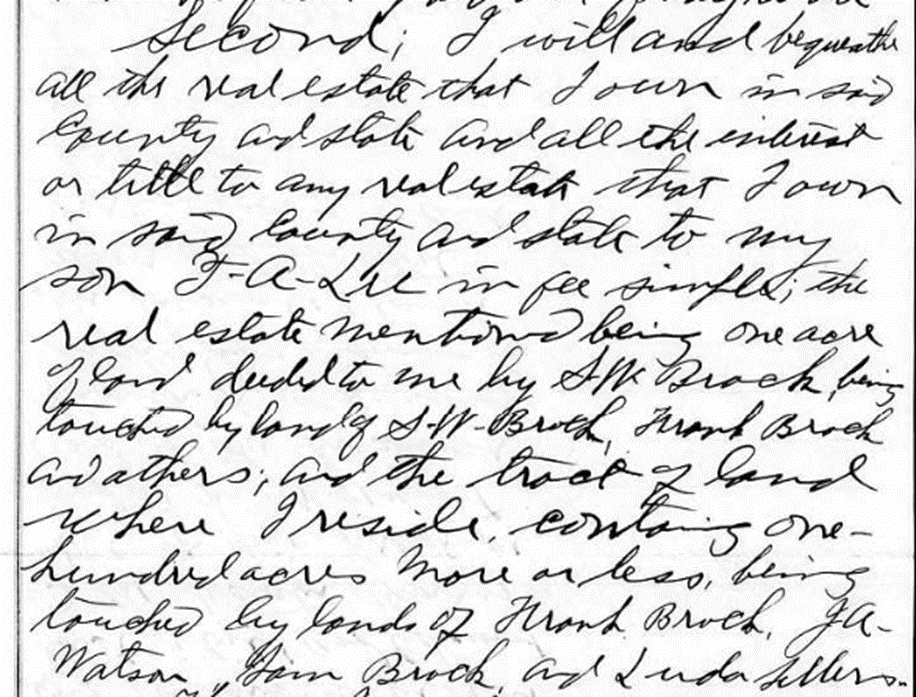 Second; I will and bequeathe
all the real estate that I own in said
County and state and all the interest
or title to any real estate that I own
in said County and state to my
son F-A-Lee in fee simple; the
real estate mentioned being one acre
of land deeded to me by S-W Brock, being
touched by land of S-W-Brock, Frank Brock
and others; and the tract of land
where I reside, containing one-
hundred acres more or less, being
touched by lands of Frank Brock, J A-
Watson, Sam Brock, and Luda Sellers-